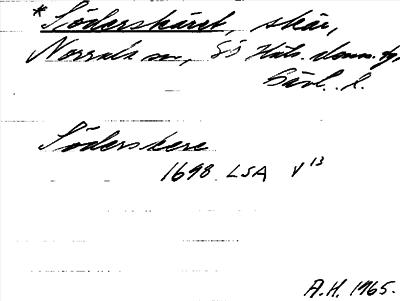 *Söderskäret, skär,
Norrala sn, Sö Häls. dom. sg,
Gävl. l.
Söderskere
1698 LSA V 13
A.H. 1965.